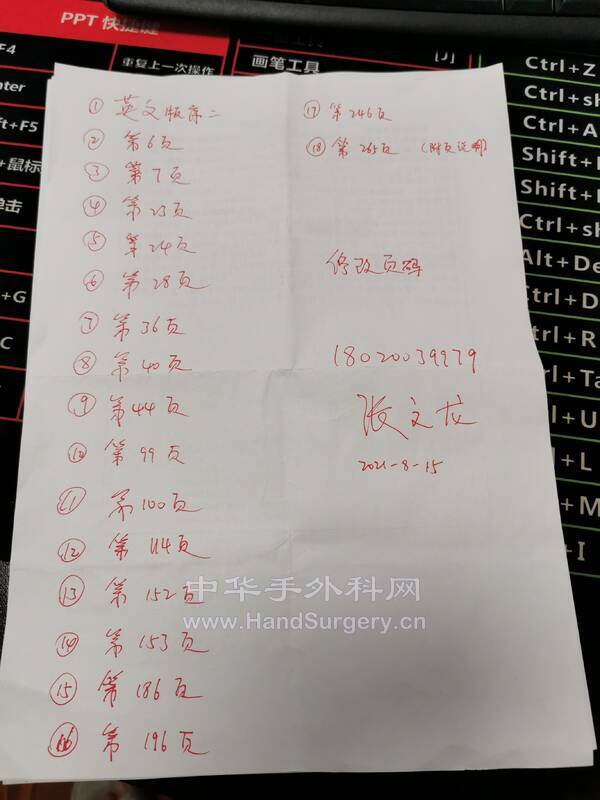 PPT 快捷键
F4
重复上一次操作
画笔工具
[J]
Ctrl+Z
Ctrl+sh
Ctrl+A
Shift+
Shift+F
Ctrl+sh
Alt+De
Ctrl+D
Ctrl+R
Ctrl+Ta
Ctrl+U
+L
+M
+I
nter
ift+F5
+鼠标
单击
+G
C
① 英文版序二
② 第6页
③ 第7页
④ 第23页
⑤ 第24页
⑥ 第28页
⑦ 第36页
⑧ 第40页
⑨ 第44页
⑩ 第99页
⑪ 第100页
⑫ 第114页
⑬ 第152页
⑭ 第153页
⑮ 第186页
⑯ 第196页
⑰ 第246页
⑱ 第265页 (附页说明)
修改页码
18020039979
张文龙
2021-8-15
中华手外科网
www.HandSurgery.cn